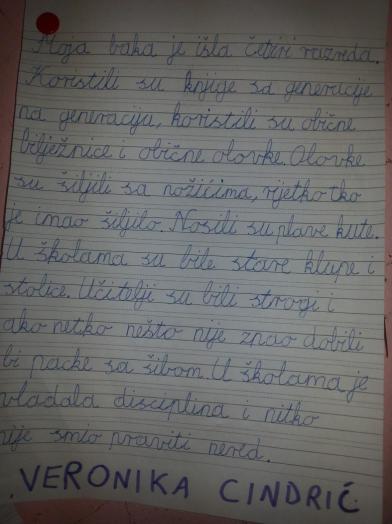 Moja baka je išla četiri razreda.
Koristili su knjige sa generacije
na generaciju, koristili su obične
bilježnice i obične olovke. Olovke
su šiljili sa nožićima, rijetko tko
je imao šiljilo. Nosili su plave kute.
U školama su bile stare klupe i
stolice. Učitelji su bili strogi i
ako netko nešto nije znao dobili
bi packe sa šibom. U školama je
vladala disciplina i nitko
nije smio praviti nered.
VERONIKA CINDRIĆ